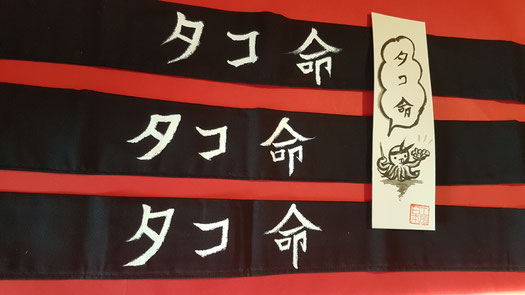 タコ命
タコ命
タコ命
タコ命